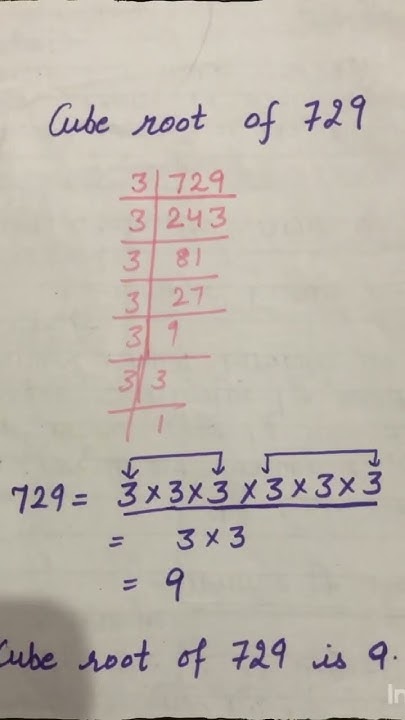 Cube root of 729
3 | 729
3 | 243
3 | 81
3 | 27
3 | 9
3 | 3
| 1
729 = 3 × 3 × 3 × 3 × 3 × 3
= 3 × 3
= 9
Cube root of 729 is 9.
In